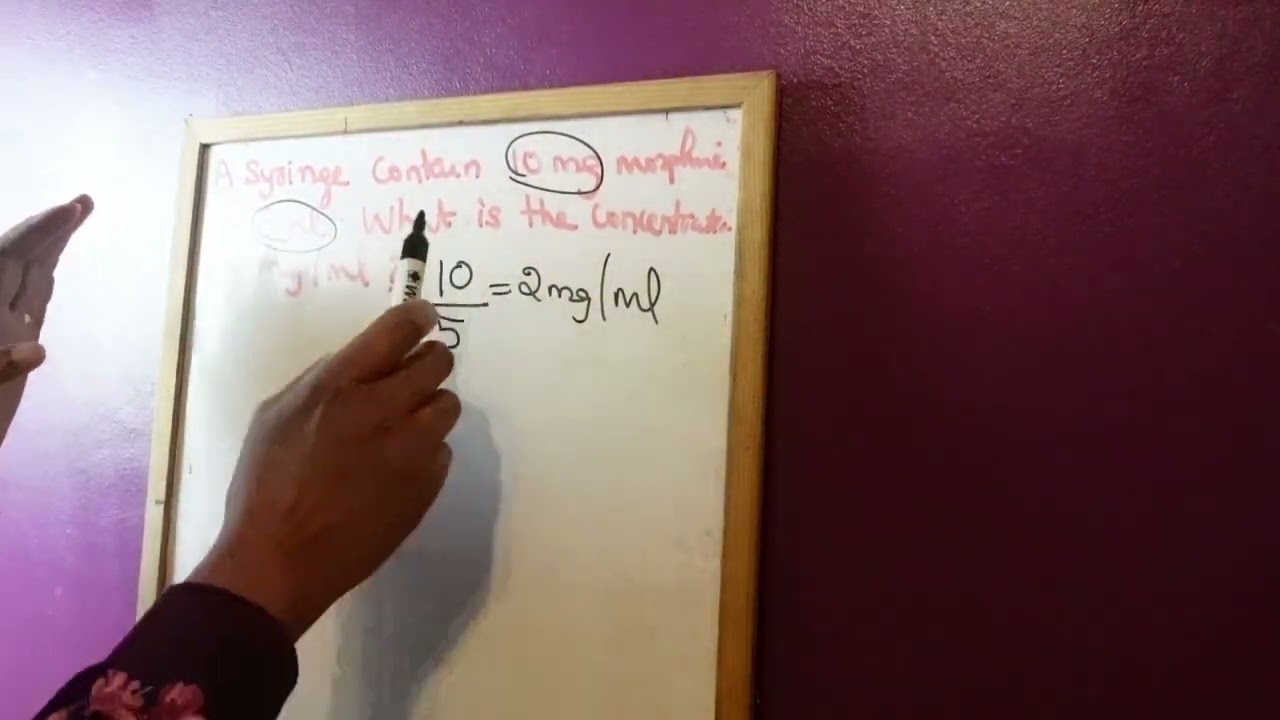 A Syringe Contain 10 mg morphine
ml. What is the Concentratn
mg/ml ?
10
5
= 2mg/ml